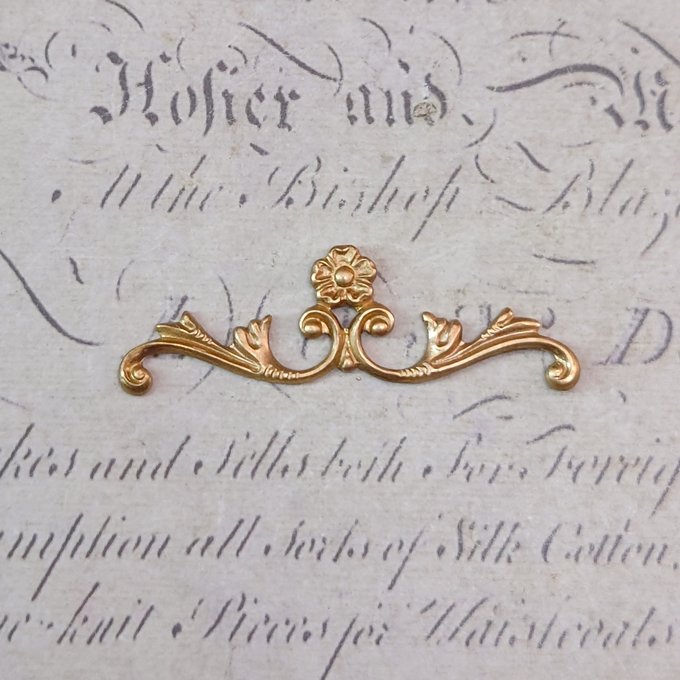 Hosier and. M
At the Bishop Blaz
D
kes and Sells both For Foreig
umption all Sorts of Silk Cotton.
re-knit Pieces for Waistcoats